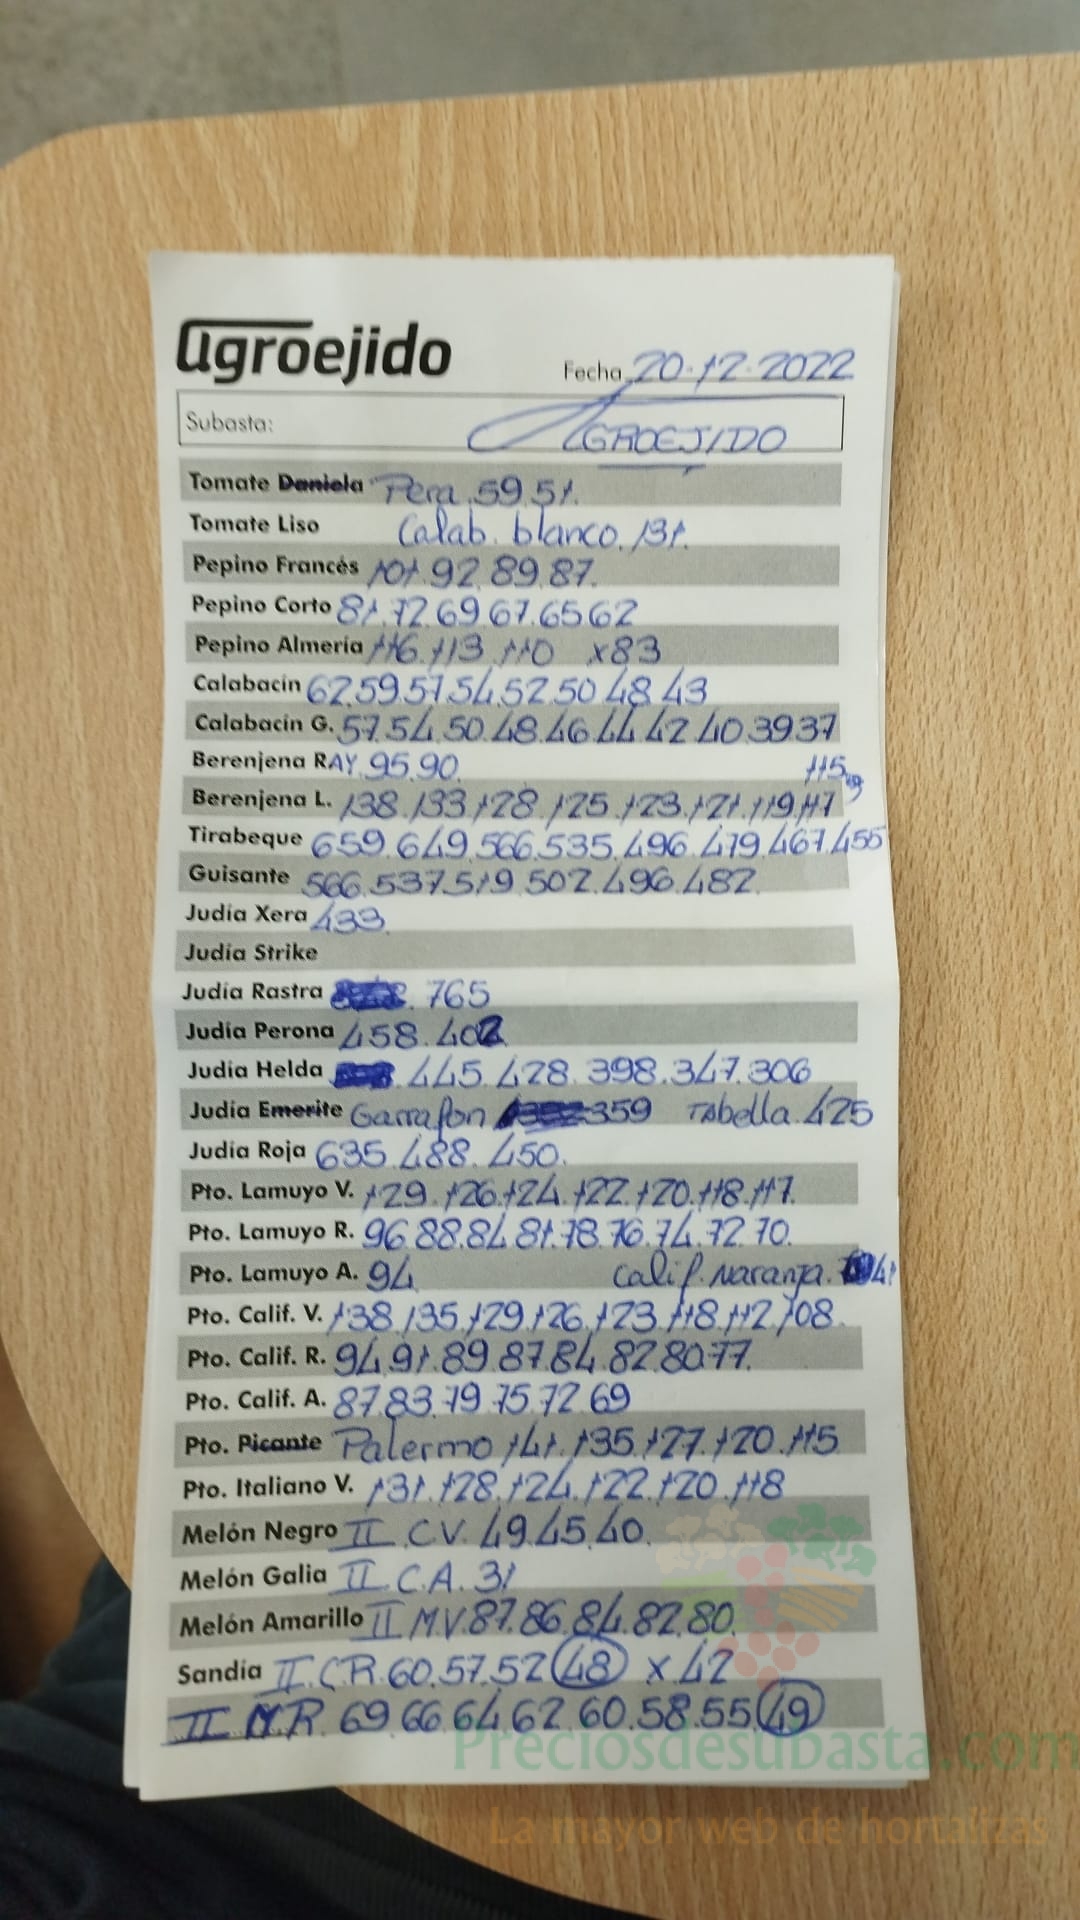 agroejido
Fecha 20-12-2022
Subasta: AGROEJIDO
Tomate Daniela Pera. 59.51.
Tomate Liso Calab. blanco. 131.
Pepino Francés 101.92.89.87.
Pepino Corto 81.72.69.67.65.62
Pepino Almería 116.113.110 x83
Calabacín 62.59.57.54.52.50.48.43
Calabacín G. 57.54.50.48.46.44.42.40.39.37
Berenjena RAY. 95.90. 115
Berenjena L. 138.133.128.125.123.121.119.117
Tirabeque 659.649.566.535.496.479.467.455
Guisante 566.537.519.502.496.482.
Judía Xera 433.
Judía Strike
Judía Rastra . 765
Judía Perona 458.402
Judía Helda . 445.428.398.347.306
Judía Emerite Garrafon 359 Tabella. 425
Judía Roja 635.488.450.
Pto. Lamuyo V. 129.126.124.122.120.118.117.
Pto. Lamuyo R. 96.88.84.81.78.76.74.72.70.
Pto. Lamuyo A. 94. Calif. Naranja.
Pto. Calif. V. 138.135.129.126.123.118.112.108.
Pto. Calif. R. 94.91.89.87.84.82.80.77.
Pto. Calif. A. 87.83.79.75.72.69
Pto. Picante Palermo 141.135.127.120.115
Pto. Italiano V. 131.128.124.122.120.118
Melón Negro II C.V. 49.45.40.
Melón Galia II C.A. 31
Melón Amarillo II M.V. 87.86.84.82.80.
Sandía II.C.R. 60.57.52 48 x 42
II M R 69 66 64 62 60.58.55.49
Preciosdesubasta.com
La mayor web de hortalizas